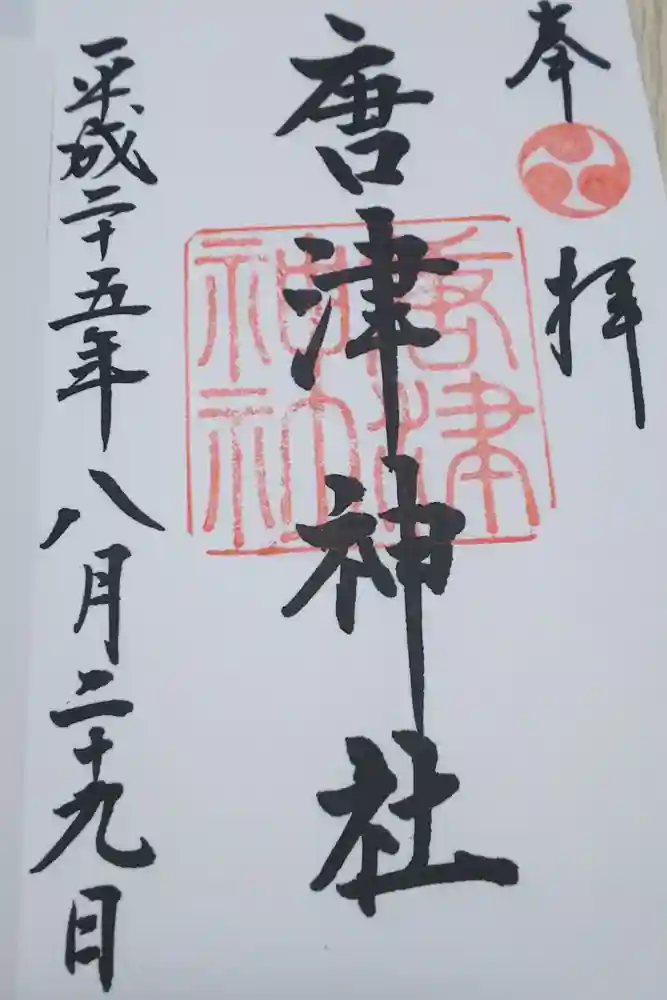 奉拝
唐津神社
唐津神社
平成二十五年八月二十九日